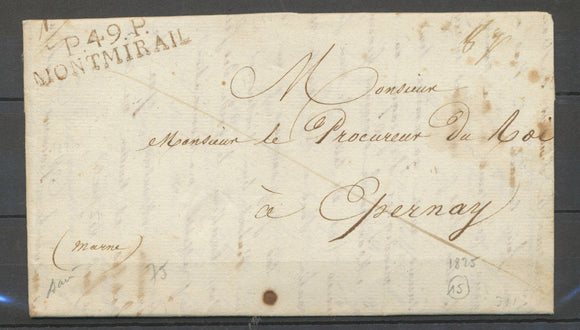 P.49.P.
MONTMIRAIL
Monsieur
Monsieur le Procureur du Roi
à Epernay
(Marne)
75
1825
15